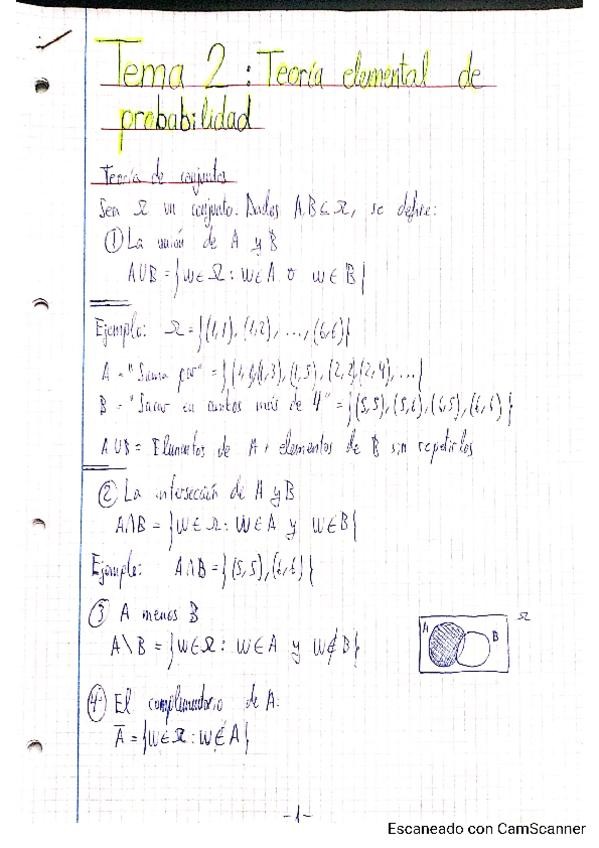 Tema 2: Teoría elemental de
probabilidad
Teoría de conjuntos
Sea Ω un conjunto. Dados A,B⊆Ω, se define:
① La unión de A y B
A∪B = {w∈Ω: w∈A o w∈B}
Ejemplo: Ω = {(1,1), (1,2), ..., (6,6)}
A = "Suma par" = {(1,1),(1,3), (1,5), (2,2),(2,4), ...}
B = "Sacar en ambos más de 4" = {(5,5), (5,6), (6,5), (6,6)}
A∪B = Elementos de A + elementos de B sin repetirlos
② La intersección de A y B
A∩B = {w∈Ω: w∈A y w∈B}
Ejemplo: A∩B = {(5,5), (6,6)}
③ A menos B
A\B = {w∈Ω: w∈A y w∉B}
A B Ω
④ El complementario de A:
Ā = {w∈Ω: w∉A}
-1-
Escaneado con CamScanner